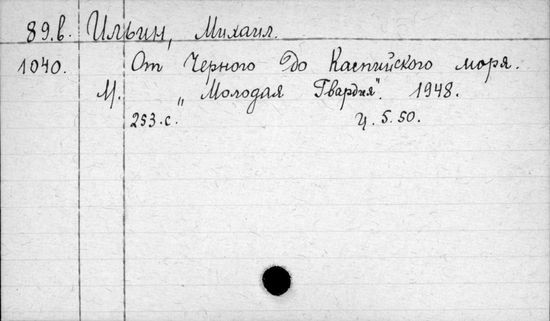 89.в. Ильин, Михаил.
1040. От Черного до Каспийского моря.
М. „Молодая Гвардия". 1948.
253.с. Ц. 5.50.